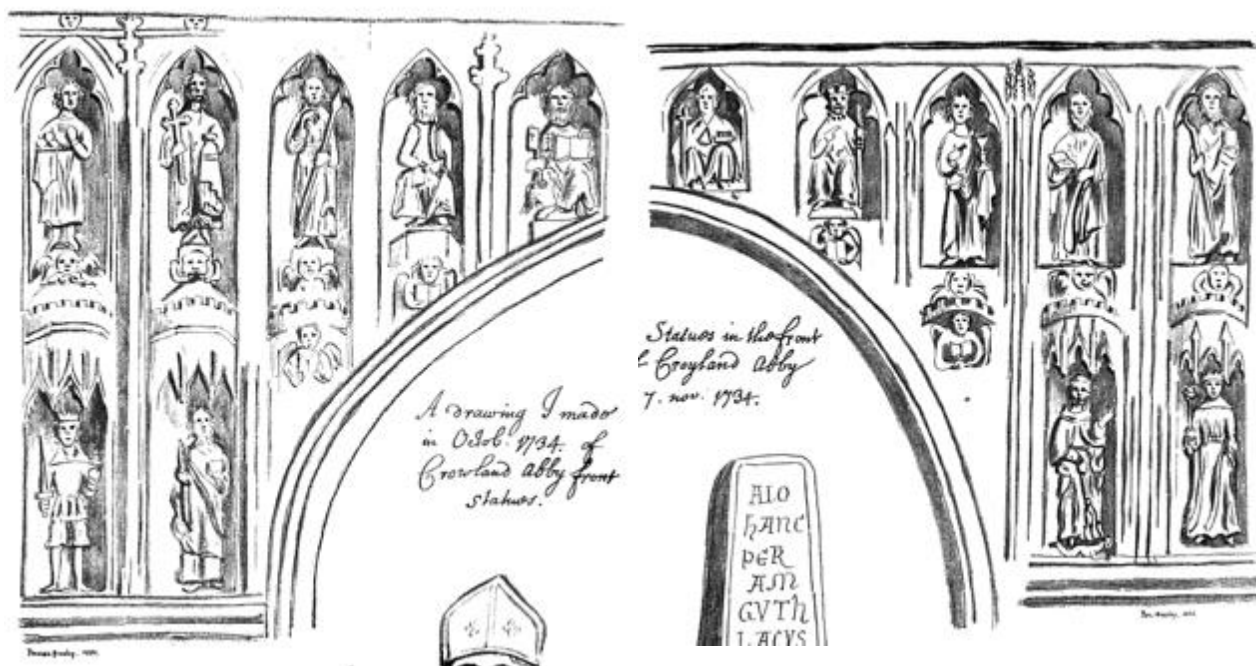 A drawing I made
in Octob. 1734. of
Crowland Abby front
statues.
Statues in the front
Croyland Abby
7. nov. 1734.
AIO
hANC
PER
AM
GVTh
LACVS